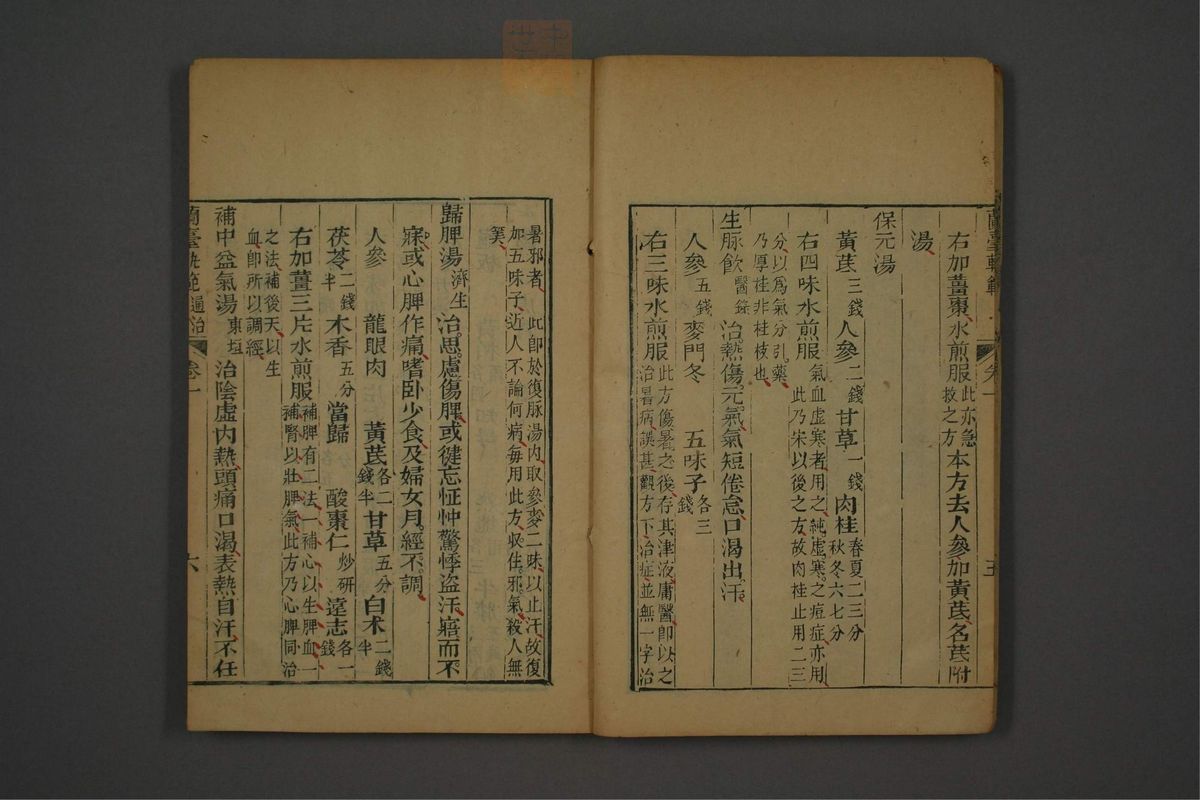 蘭臺軌範
卷一
五
右加薑棗水煎服此亦急救之方本方去人參加黃芪名芪附
湯
保元湯
黃芪三錢人參二錢甘草一錢肉桂春夏二三分秋冬六七分
右四味水煎服氣血虛寒者用之純虛寒之痘症亦用此乃宋以後之方故肉桂止用二三
分以爲氣分引藥乃厚桂非桂枝也
生脉飲醫錄治熱傷元氣氣短倦怠口渴出汗
人參五錢麥門冬 五味子各三錢
右三味水煎服此方傷暑之後存其津液庸醫即以之治暑病誤甚觀方下治症並無一字治
暑邪者此即於復脉湯內取參麥二味以止汗故復加五味子近人不論何病每用此方收住邪氣殺人無
筭
歸脾湯濟生治思慮傷脾或健忘怔忡驚悸盜汗寤而不
寐或心脾作痛嗜卧少食及婦女月經不調
人參 龍眼肉 黃芪各二錢半甘草五分白术二錢半
茯苓二錢半木香五分當歸 酸棗仁炒研遠志各一錢
右加薑三片水煎服補脾有二法一補心以生脾血一補腎以壯脾氣此方乃心脾同治
之法補後天以生血即所以調經
補中益氣湯東垣治陰虛內熱頭痛口渴表熱自汗不任
蘭臺軌範
通治
卷一
六